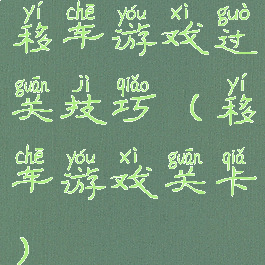 yí chē yóu xì guò
移车游戏过
guān jì qiǎo yí
关技巧(移
chē yóu xì guān qiǎ
车游戏关卡
)